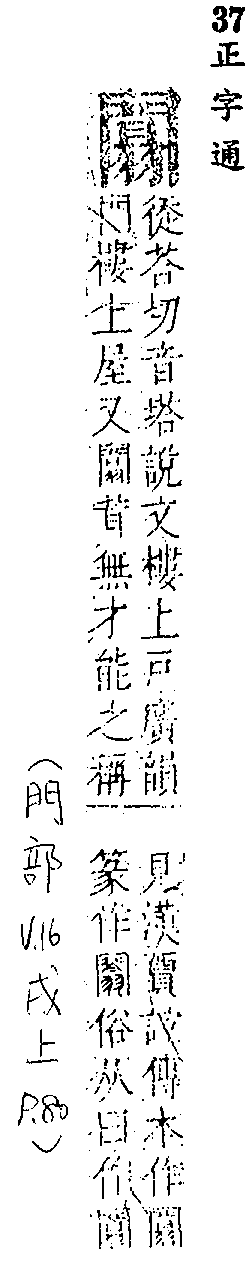 37 正字通
從荅切音塔說文樓上戸廣韻
門樓上屋又闒茸無才能之稱
見漢賈誼傳本作闒
篆作闒俗从日作
(門部 V.16 戌上 P.80)